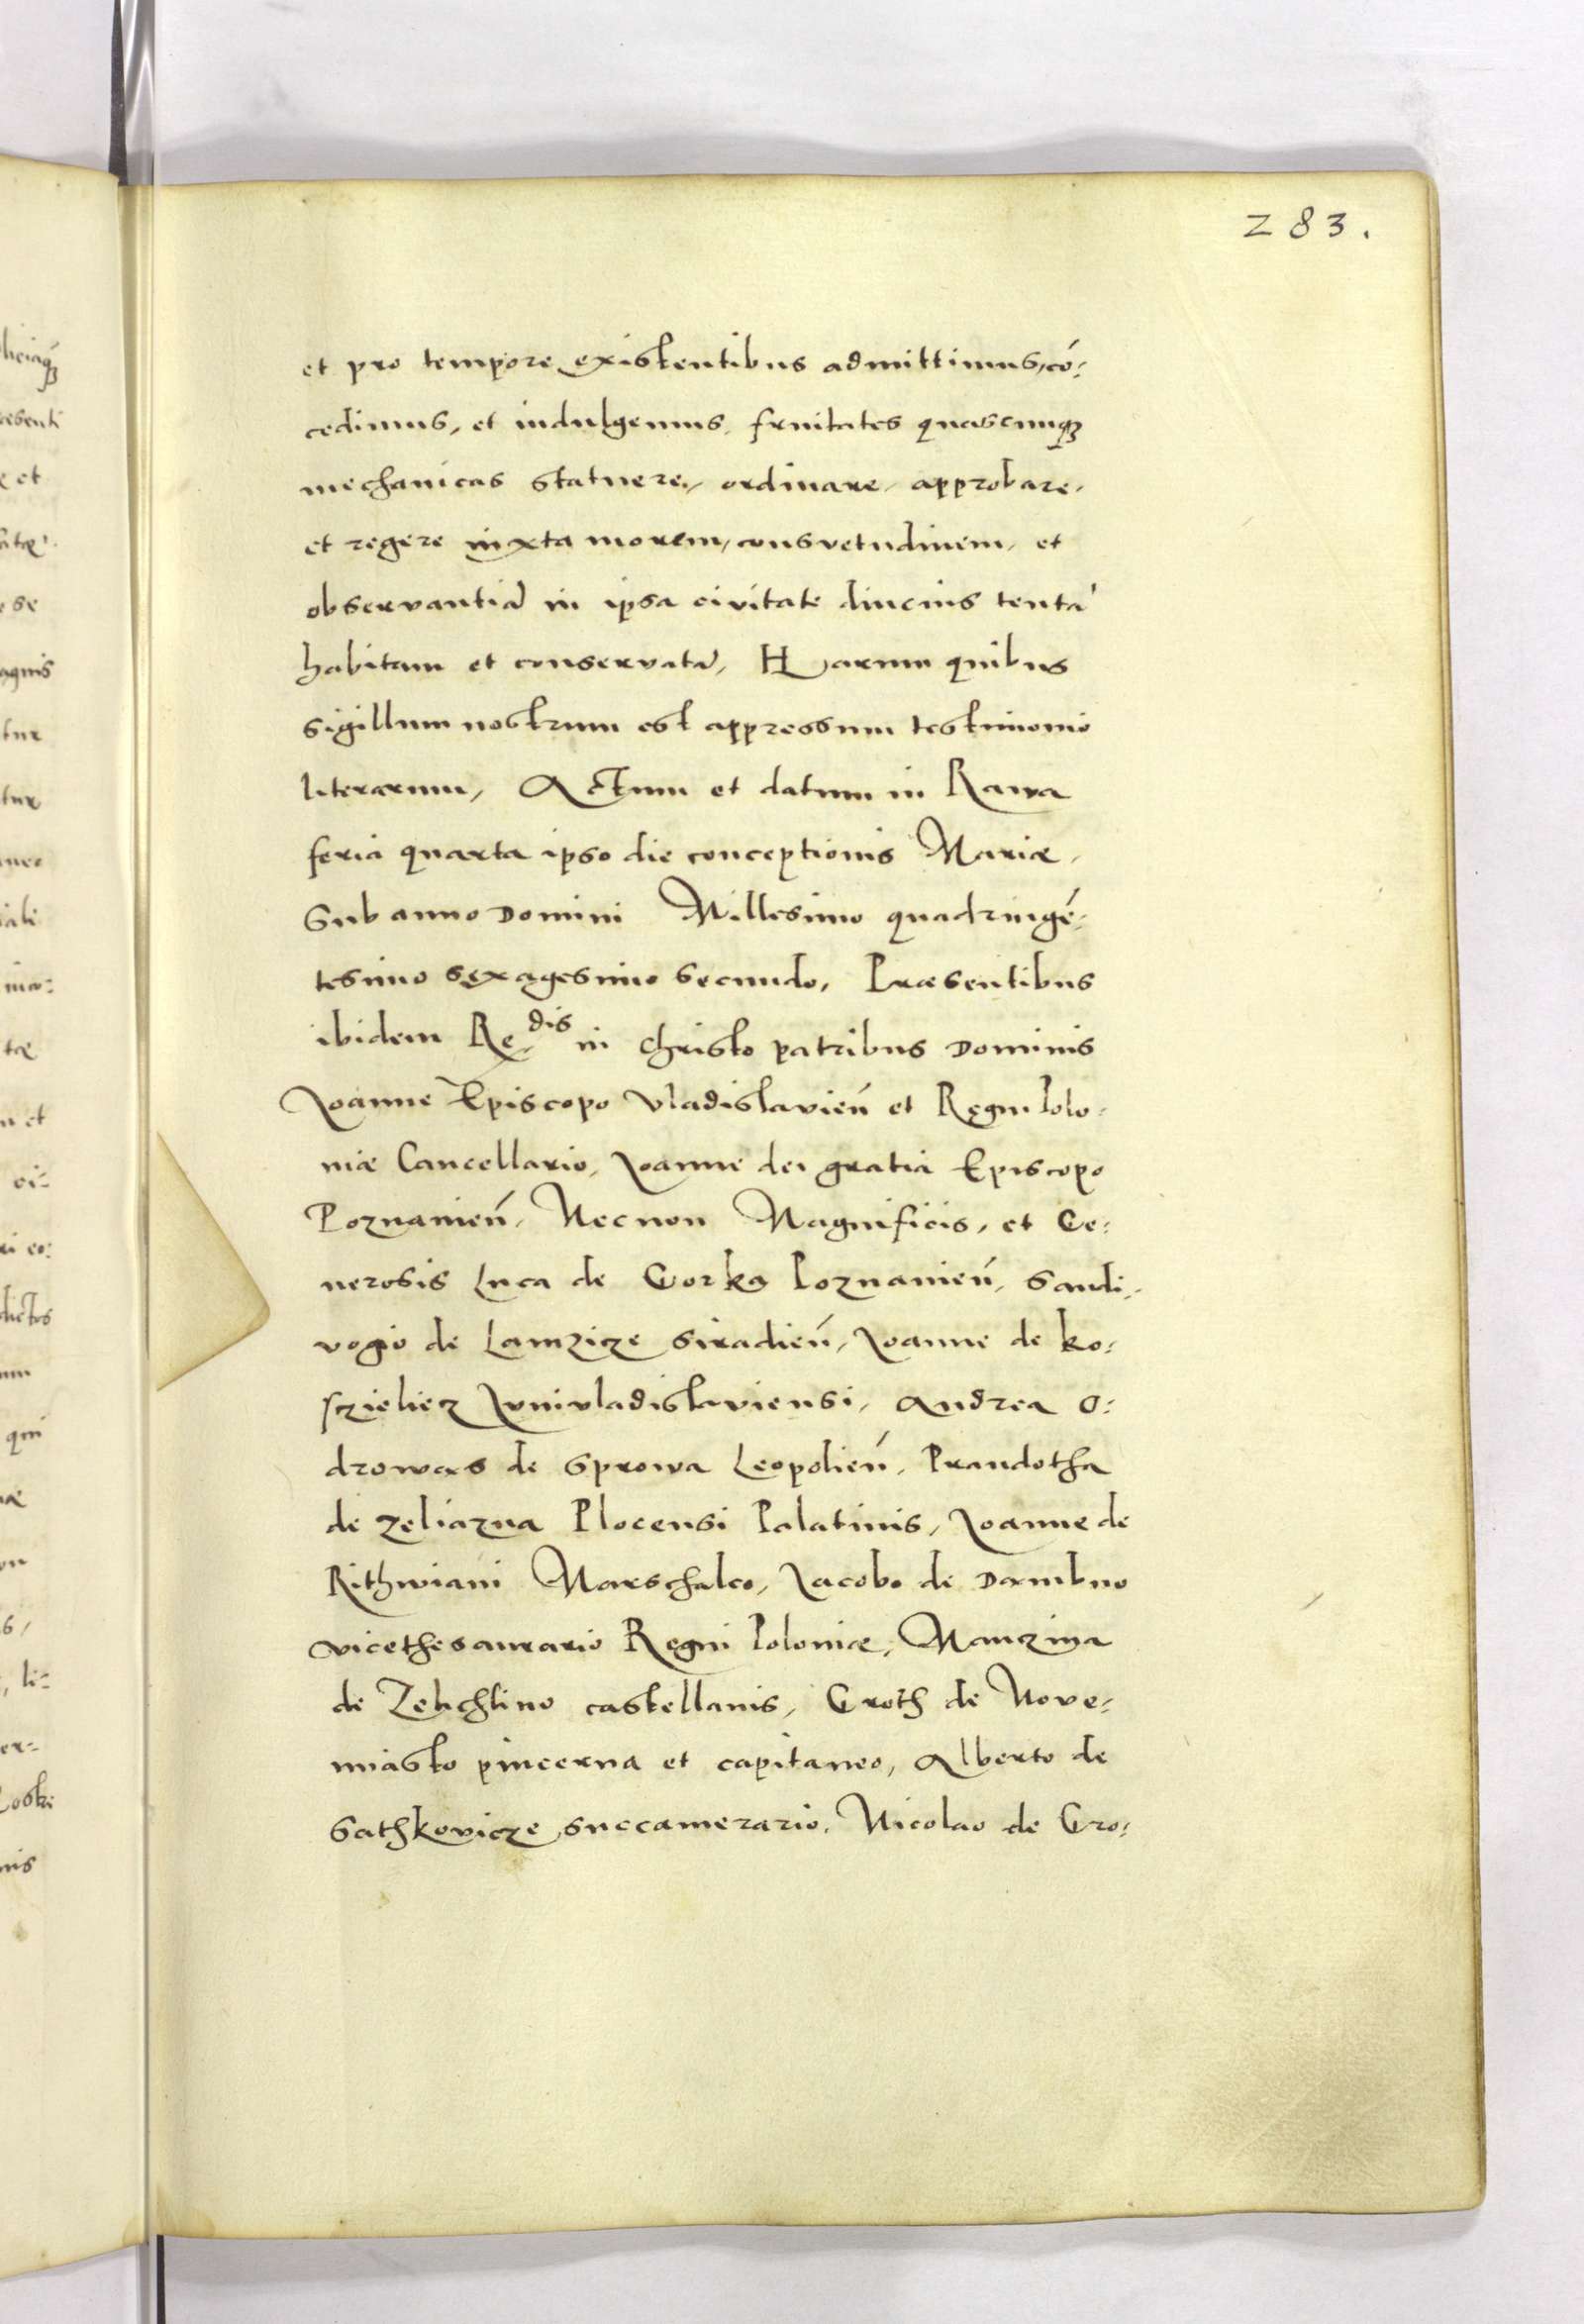 283.
et pro tempore existentibus admittimus, có:
cedimus, et indulgemus, fruitates quascunq3
mechanicas statuere, ordinare, approbare,
et regere iuxta morem, consvetudinem, et
observantiā in ipsa civitate diucius tentā
habitam et conservatā, Harum quibus
sigillum nostrum est appressum testimonio
literarum, Actum et datum in Rawa
feria quarta ipso die conceptionis Mariæ,
Sub anno Domini Millesimo quadringé:
tesimo sexagesimo secundo, Præsentibus
ibidem Re.dis in Christo patribus Dominis
Joanne Episcopo Vladislavień et Regni Polo:
niæ Cancellario, Joanne dei gratia Episcopo
Poznanień, Necnon Magnificis, et Ge:
nerosis Luca de Gorka Poznanień, Sandi:
vogio de Lamzicze Siradień, Joanne de Ko:
sczieliecz Junivladislaviensi, Andrea O:
drowas de Sprowa Leopolień, Prandotha
de Zeliazna Plocensi Palatinis, Joanne de
Rithwiani Marschalco, Jacobo de Dambno
vicethesaurario Regni Poloniæ, Manzina
de Zelichlino castellanis, Groth de Nove:
miasto pincerna et capitaneo, Alberto de
Sathkovicze succamerario, Nicolao de Gro: